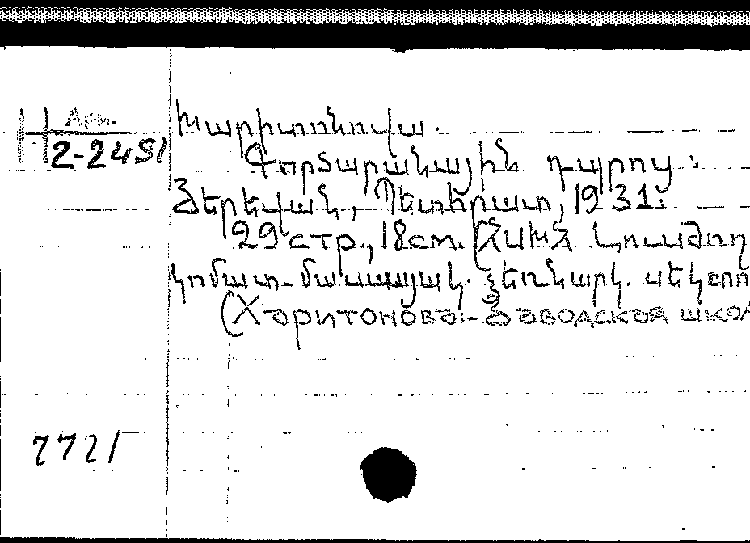 Арм.
2-2451
Խարիտոնովա.
Գործարանային դպրոց:
Յերեվան, Պետհրատ, 1931:
29 стр., 18 см. (ՀՍԽՀ Լուսժող
կոմատ-մասսայակ. ձեռնարկ. սեկտո
(Харитонова-Заводская шко
7721